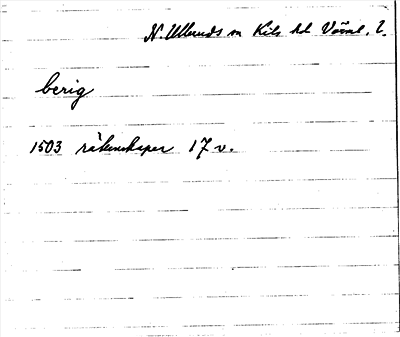 N. Ulleruds sn Kils hd Värml. l.
berig
1503 räkenskaper 17 v.